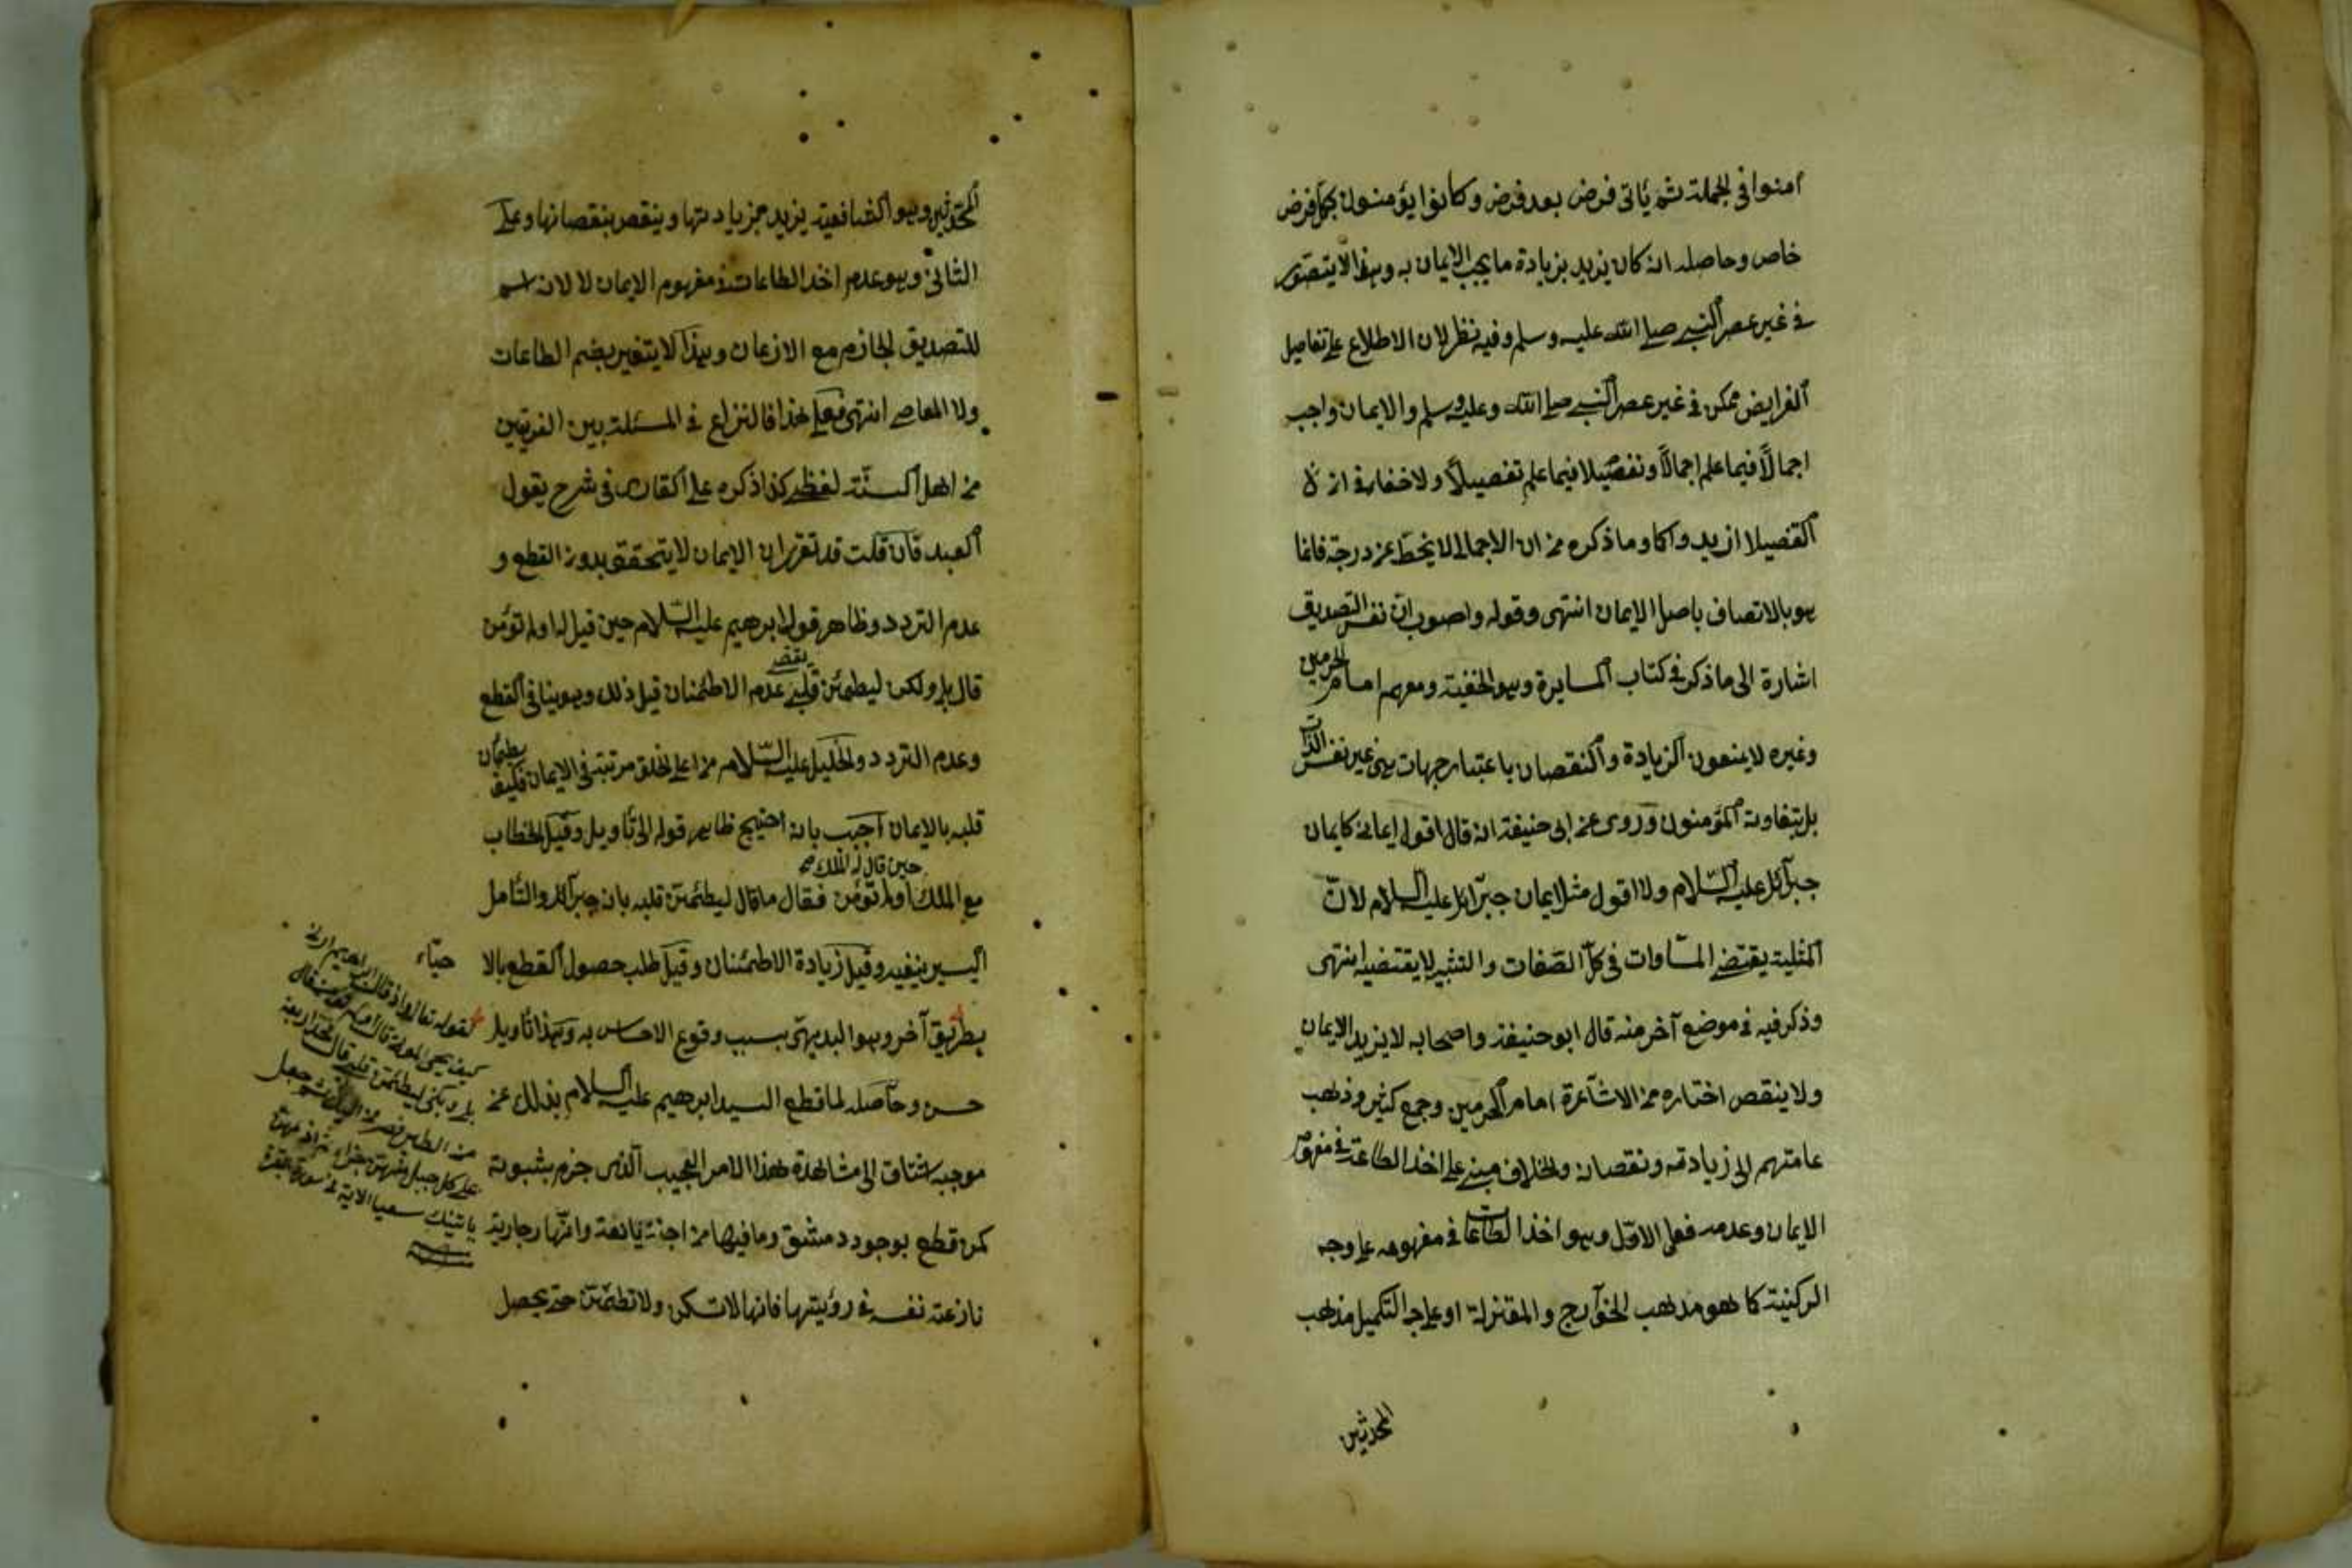 امنوا في الجملة ثم يأتى فرض بعد فرض وكانوا يؤمنون بكل فرض
خاص وحاصله انه كان يزيد بزيادة ما يجب الايمان به وهذا لا يتصور
في غير عصر النبي صلى الله عليه وسلم وفيه نظر لان الاطلاع على تفاصيل
الفرايض ممكن في غير عصر النبي صلى الله وعليه وسلم والايمان واجب
اجمالاً فيما علم اجمالاً وتفصيلا فيما علم تفصيلاً ولا خفاء في ان
التفصيلا ازيد وا كما وما ذكره من ان الاجمال لا ينحط عن درجته فانما
هو بالاتصاف باصل الايمان انتهى وقوله واصوب ان نفس التصديق
اشارة الى ما ذكر في كتاب المسايرة وهو الحنفية ومعهم امام الحرمين
وغيره لا يمنعون الزيادة والنقصان باعتبار جهات هي غير نفس الذات
بل بتفاوته المؤمنون وروى عن ابى حنيفة انه قال اقول ايمانى كايمان
جبرآئل عليه السلام ولا اقول مثل ايمان جبرآئل عليه السلام لانّ
المثلية يقتضي المساوات في كلّ الصفات والتشبيه لا يقتضيه انتهى
وذكر فيه في موضع آخر منه قال ابو حنيفة واصحابه لا يزيد الايمان
ولا ينقص اختاره من الاشاعرة امام الحرمين وجمع كثير وذهب
عامتهم الى زيادته ونقصانه والخلاف مبني على اخذ الطاعة في مفهوم
الايمان وعدمه فعلى الاوّل وهو اخذ الطاعات في مفهومه على وجه
الركنية كا هو مذهب الخوآرج والمقتزلة او على وجه التكميل مذهب
المحدثين
المحدثين وهو الشافعية يزيد بزيادتها وينقص بنقصانها وعلى
الثانى وهو عدم اخذ الطاعات في مفهوم الايمان لا لانه اسم
للتصديق الجازم مع الاذعان وهذا لا يتغير بضم الطاعات
ولا المعاصي انتهى فعلى هذا فالنزاع في المسئلة بين الفريقين
من اهل السنّة لفظي كذا ذكره على القارى في شرح يقول
العبد فان قلت قد تقرر ان الايمان لا يتحقق بدون القطع و
عدم التردد وظاهر قول ابرهيم عليه السّلام حين قيل له اولم تؤمن
قال بلى ولكن ليطمئن قلبي يقتضي عدم الاطمئنان قبل ذلك وهو ينافى القطع
وعدم التردد والخليل عليه السّلام من اعلى الخلق مرتبة في الايمان فكيف يطمئن
قلبه بالايمان اجيب بانه احتيج ظاهر قوله الى تأويل وقيل الخطاب
مع الملك حين قال له الملك اولم تؤمن فقال ما قال ليطمئن قلبه بانه جبرآئل والتأمل
اليسير ينفيه وقيل زيادة الاطمئنان وقيل طلب حصول القطع بالاحياء
بطريق آخر وهو البديهى بسبب وقوع الاحساس به وهذا تأويل
حسن وحاصله لما قطع السيد ابرهيم عليه السلام بذلك عن
موجبه اشتاق الى مشاهدة هذا الامر العجيب الذى جزم بثبوته
كمن قطع بوجود دمشق وما فيها من اجنة يانعة وانهار جارية
نازعته نفسه في رؤيتها فانها لا تسكن ولا تطمئن حتى يحصل
لقوله تعالى واذ قال ابراهيم ارنى
كيف تحيى الموتى قال اولم تؤمن قال
بلى ولكن ليطمئن قلبي قال فخذ اربعة
من الطير فصرهن اليك ثم اجعل
على كل جبل منهن جزاء ثم ادعهن
ياتينك سعيا الاية في سورة البقرة